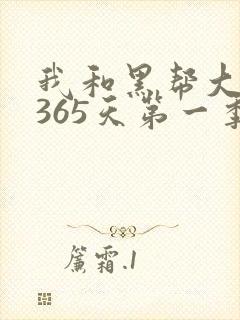 我和黑帮大
365天第一季
簾霜.1